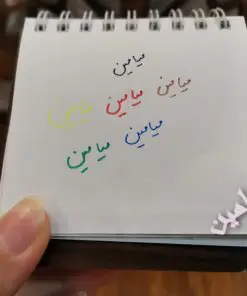 ميامين
ميامين ميامين ميامين
ميامين ميامين